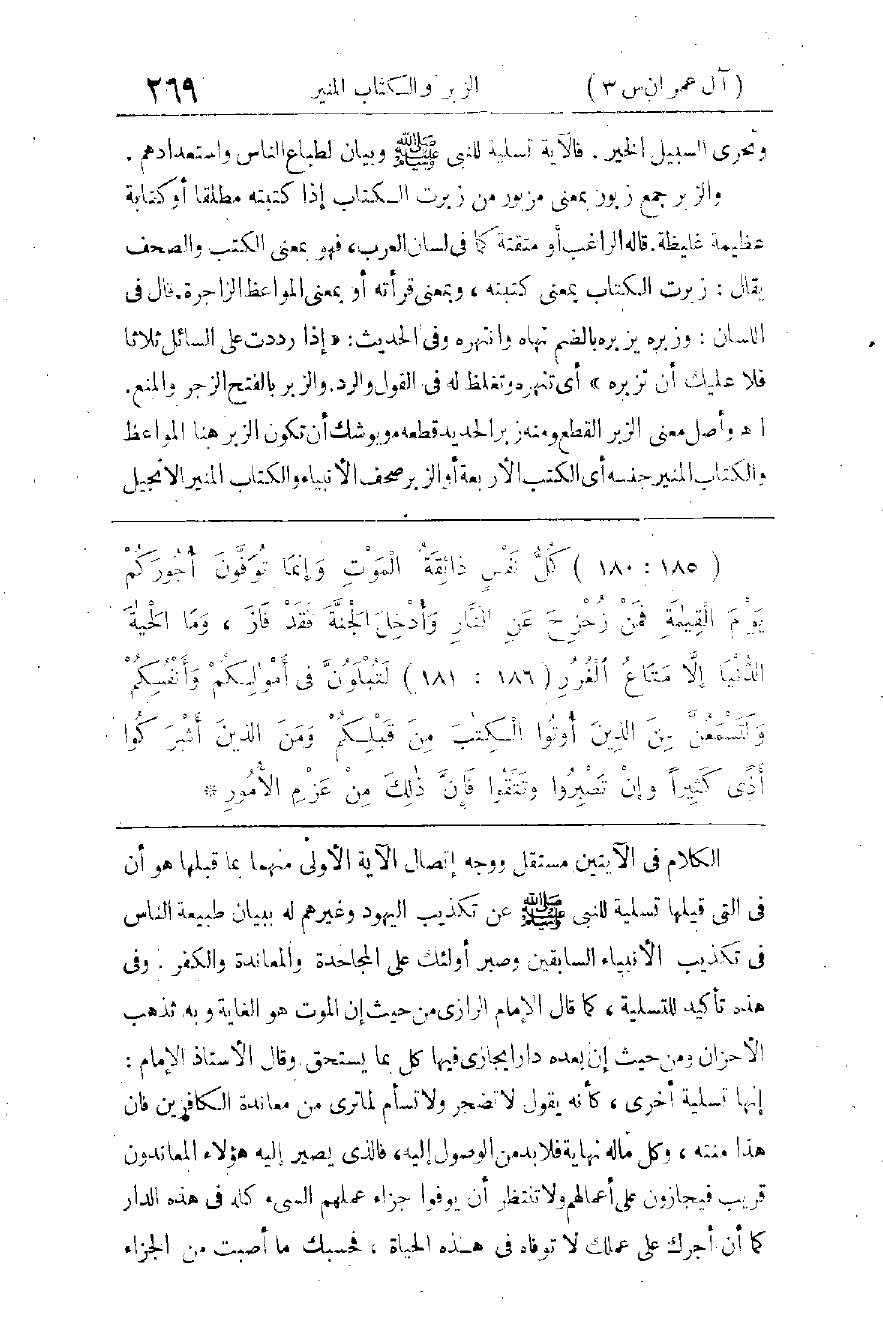 ( آل عمران س ٣ ) الزبر والكتاب المنير ٢٦٩
وتحرى السبيل الخير . فالآية تسلية للنبى ﷺ وبيان لطباع الناس واستعدادهم .
والزبر جمع زبور بمعنى مزبور من زبرت الكتاب إذا كتبته مطلقا أو كتابة
عظيمة غليظة . قاله الراغب أو متقنة كما فى لسان العرب ، فهو بمعنى الكتب والصحف
يقال : زبرت الكتاب بمعنى كتبته ، وبمعنى قرأته أو بمعنى المواعظ الزاجرة . قال فى
اللسان : وزبره يزبره بالضم نهاه وانتهره وفى الحديث : « إذا رددت على السائل ثلاثا
فلا عليك أن تزبره » أى تنهره وتغلظ له فى القول والرد . والزبر بالفتح الزجر والمنع .
ا ه وأصل معنى الزبر القطع ومنه زبر الحديد قطعه ويوشك أن تكون الزبر هنا المواعظ
والكتاب المنير جنسه أى الكتب الأربعة أو الزبر صحف الأنبياء والكتاب المنير الانجيل
( ١٨٥ : ١٨٠ ) كُلُّ نَفْسٍ ذَائِقَةُ الْمَوْتِ وَإِنَّمَا تُوَفَّوْنَ أُجُورَكُمْ
يَوْمَ الْقِيٰمَةِ فَمَنْ زُحْزِحَ عَنِ النَّارِ وَأُدْخِلَ الْجَنَّةَ فَقَدْ فَازَ ، وَمَا الْحَيٰةُ
الدُّنْيَا إِلَّا مَتَاعُ الْغُرُرِ ( ١٨٦ : ١٨١ ) لَتُبْلَوُنَّ فِى أَمْوٰلِكُمْ وَأَنْفُسِكُمْ
وَلَتَسْمَعُنَّ مِنَ الَّذِينَ أُوتُوا الْكِتٰبَ مِنْ قَبْلِكُمْ وَمِنَ الَّذِينَ أَشْرَكُوا
أَذًى كَثِيراً وَإِنْ تَصْبِرُوا وَتَتَّقُوا فَإِنَّ ذٰلِكَ مِنْ عَزْمِ الْأُمُورِ *
الكلام فى الآيتين مستقل ووجه إتصال الآية الأولى منهما بما قبلها هو أن
فى التى قبلها تسلية للنبى ﷺ عن تكذيب اليهود وغيرهم له ببيان طبيعة الناس
فى تكذيب الأنبياء السابقين وصبر أولئك على المجاحدة والمعاندة والكفر . وفى
هذه تأكيد للتسلية ، كما قال الإمام الرازى من حيث إن الموت هو الغاية وبه تذهب
الأحزان ومن حيث إن بعده دارا يجازى فيها كل بما يستحق وقال الأستاذ الإمام :
إنها تسلية أخرى ، كأنه يقول لا تضجر ولا تسأم لما ترى من معاندة الكافرين فان
هذا منته ، وكل ماله نهاية فلا بد من الوصول إليه ، فالذى يصير إليه هؤلاء المعاندون
قريب فيجازون على أعمالهم ولا تنتظر أن يوفوا جزاء عملهم السىء كله فى هذه الدار
كما أن أجرك على عملك لا توفاه فى هذه الحياة ، فحسبك ما أصبت من الجزاء